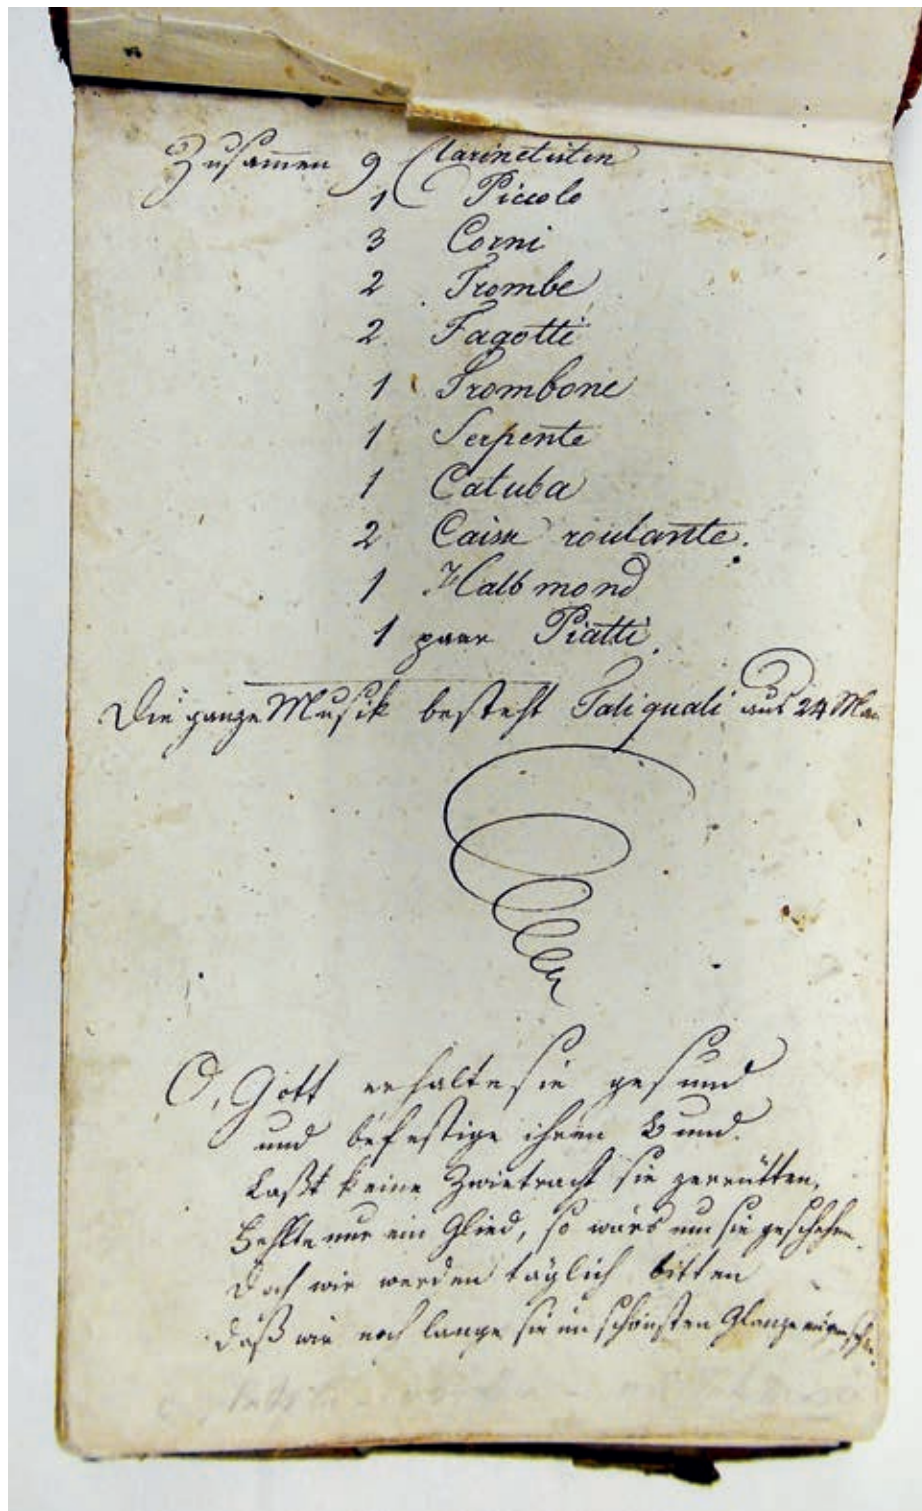 Zusam̄en 9 Clarinetisten
1 Piccolo
3 Corni
2 Trombe
2 Fagotti
1 Trombone
1 Serpente
1 Catuba
2 Caisse roulante.
1 Halbmond
1 paar Piatti.
Die ganze Musik besteht Taliquali aus 24 Man
O, Gott erhalte sie gesund
und befestige ihren Bund.
Laßt keine Zwietracht sie zerrütten,
Fehlte nur ein Glied, so wärs um sie geschehen.
Doch wir werden täglich bitten
daß wir noch lange sie im schönsten Glanze